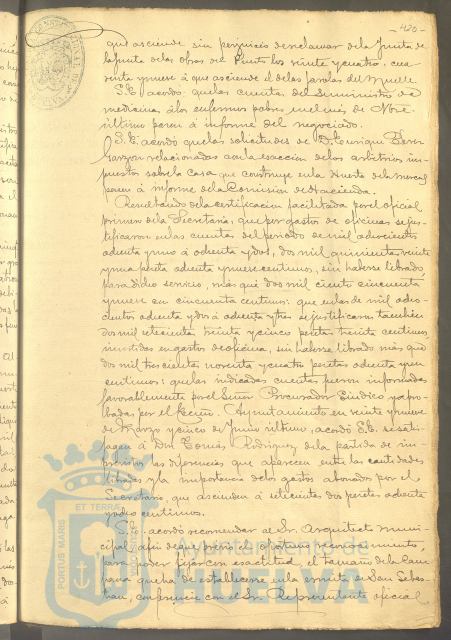 - 420 -
que asciende sin perjuicio de reclamar de la Junta de
la junta de las obras del Puerto los veinte y cuatro, cua-
renta y nueve á que asciende el de las farolas del Muelle.
S.E. acordó, que las cuentas del suministro de
medicina á los enfermos pobres mes de
último pasen á informe del negociado.
S.E. acordó que las solicitudes de D. Enrique Perez
relacionadas con la exaccion de los arbitrios im-
puestos sobre la casa que construye en la Huerta de la Merced
pasen á informe de la Comision de Hacienda.
Resultando de la certificacion facilitada por el oficial
primero de la Secretaria, que por gastos de oficinas se jus-
tificaron en las cuentas del periodo de mil ochocientos
ochenta y uno á ochenta y dos, dos mil quinientas veinte
y una peseta ochenta y nueve centimos, sin haberse librado
para dicho servicio, más que dos mil ciento cincuenta
y nueve con cincuenta centimos: que en las de mil ocho-
cientos ochenta y dos á ochenta y tres se justificaron tambien
dos mil setecientas treinta y cinco pesetas treinta centimos
invertidas en gastos de oficina, sin haberse librado más que
dos mil trescientas noventa y cuatro pesetas ochenta y un
centimos: que las indicadas cuentas fueron informadas
favorablemente por el Señor Procurador Sindico y apro-
badas por el Excmo. Ayuntamiento en veinte y nueve
de Marzo y cinco de Junio último, acordó S.E. se satis-
fagan á Don Tomás Rodriguez de la partida de im-
previstos las diferencias que aparecen entre las cantidades
libradas y la importancia de los gastos abonados por el
Secretario, que ascienden á setecientas dos pesetas ochenta
y dos centimos.
S.E. acordó recomendar al Sr. Arquitecto muni-
cipal, afin de que previo el oportuno reconocimiento,
para poder fijar con exactitud, el tamaño de la cam-
pana que ha de establecerse en la ermita de San Sebas-
tian, conferencie con el Sr. Representante oficial
ET TERRA
PORTUS MARIS
Ayuntamiento de
HUELVA